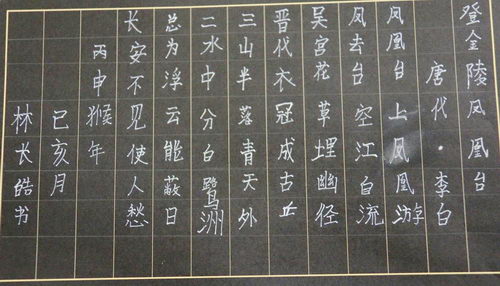 登金陵凤凰台
唐代·李白
凤凰台上凤凰游
凤去台空江自流
吴宫花草埋幽径
晋代衣冠成古丘
三山半落青天外
二水中分白鹭洲
总为浮云能蔽日
长安不见使人愁
丙申猴年
已亥月
林长皓书